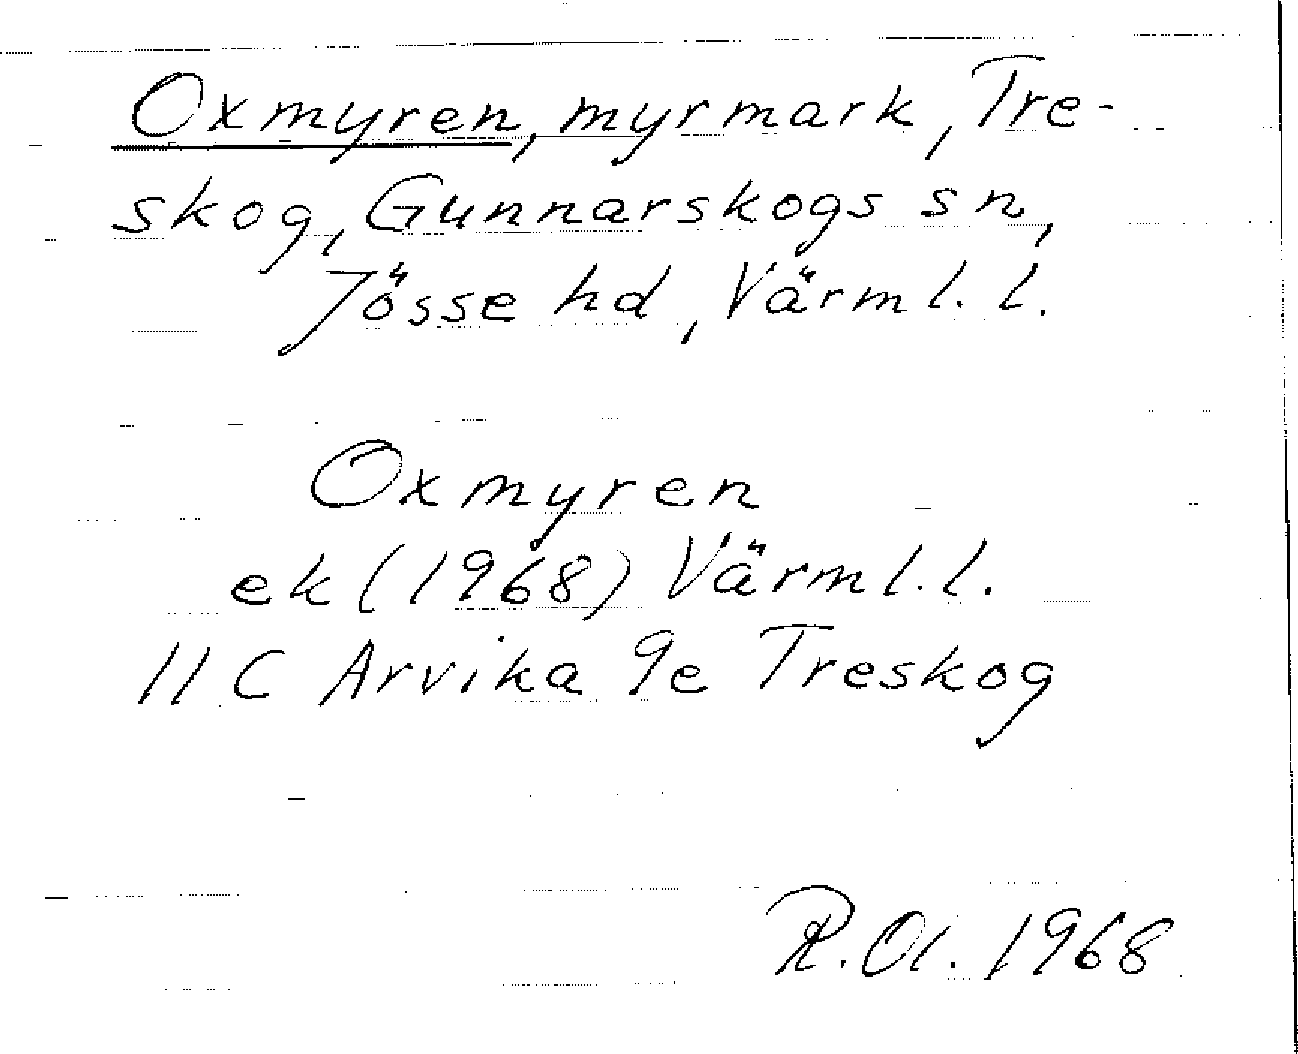 Oxmyren, myrmark, Tre-
skog, Gunnarskogs sn,
Jösse hd, Värml. l.
Oxmyren
ek (1968) Värml. l.
11 C Arvika 9e Treskog
R. Ol. 1968